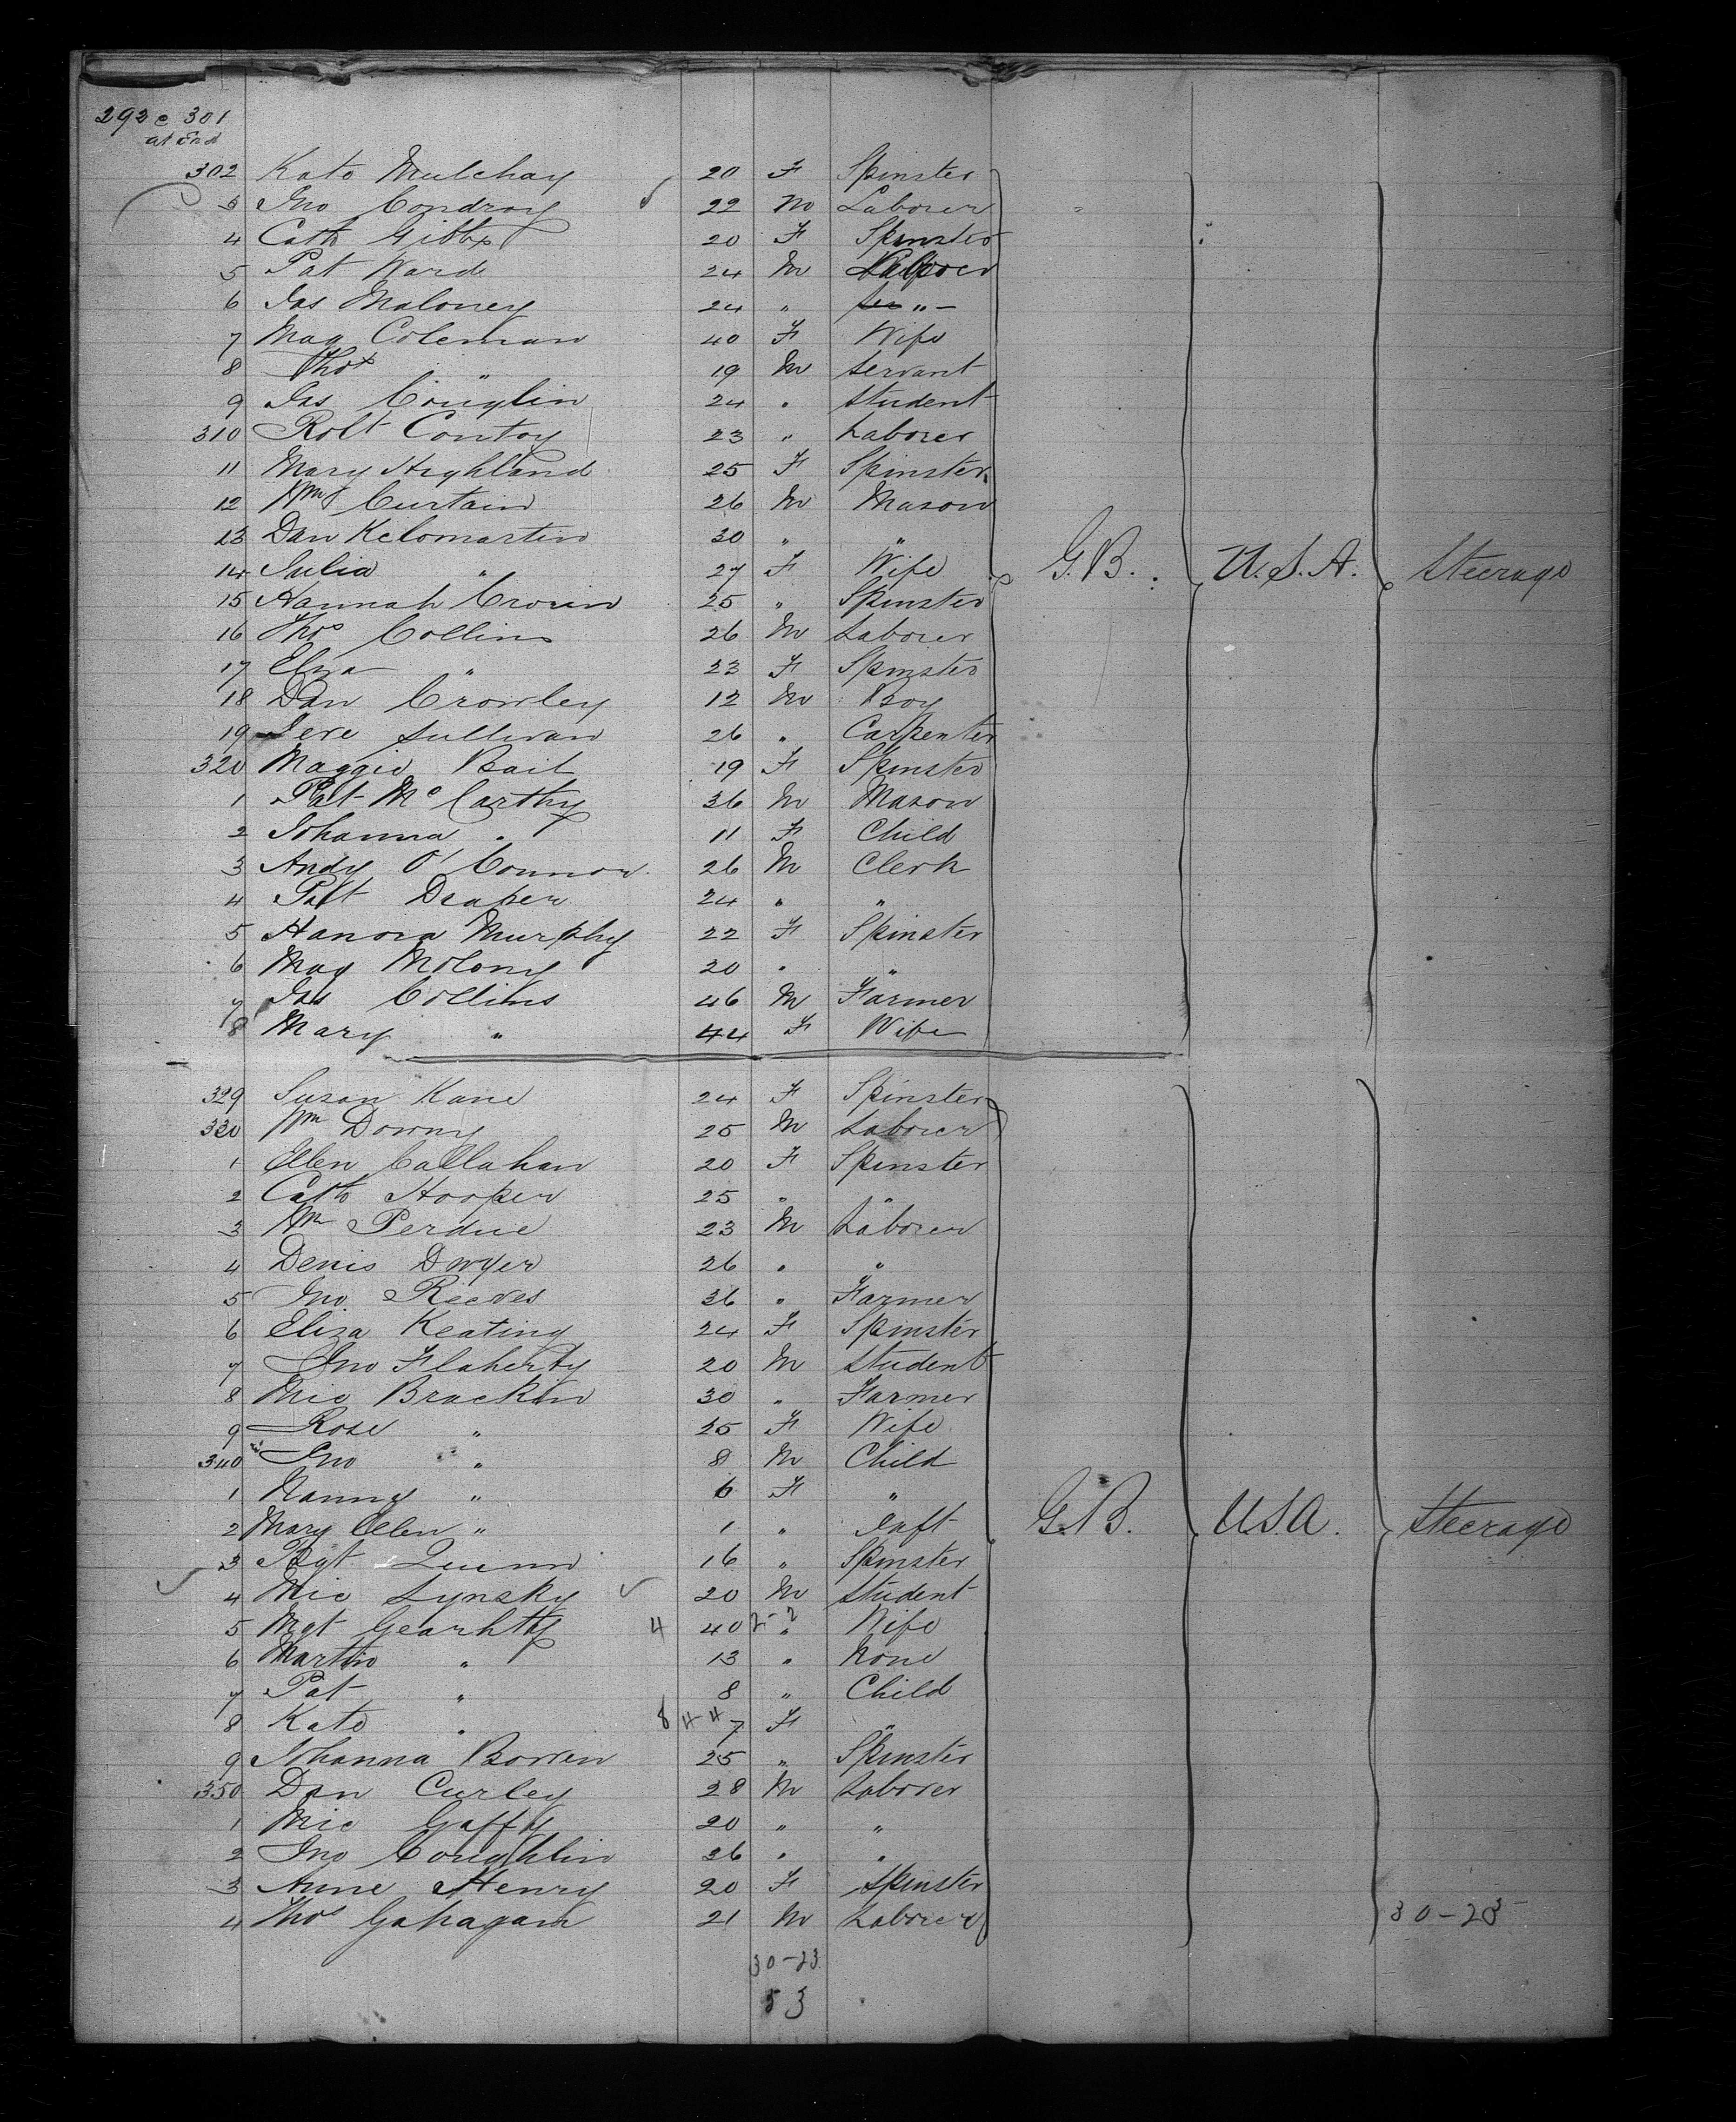 292 e 301
at End
302 Kate Mulchay 20 F Spinster
3 Jno Condroy 22 M Laborer
4 Cath Gibbs 20 F Spinster
5 Pat Ward 24 M Laborer
6 Jas Maloney 24 " "
7 Mag Coleman 40 F Wife
8 Thos " 19 M Servant
9 Jas Couglin 24 " Student
310 Robt Contoy 23 " Laborer
11 Mary Highland 25 F Spinster
12 Wm Curtain 26 M Mason
13 Dan Kelomartin 30 " "
14 Julia " 27 F Wife G.B. U.S.A. Steerage
15 Hannah Cronin 25 " Spinster
16 Thos Collins 26 M Laborer
17 Eliza " 22 F Spinster
18 Dan Crowley 12 M Boy
19 Jere Sullivan 26 " Carpenter
320 Maggie Bail 19 F Spinster
1 Pat McCarthy 36 M Mason
2 Johanna " 11 F Child
3 Andy O'Connor 26 M Clerk
4 Patt Draper 24 " "
5 Hanora Murphy 22 F Spinster
6 Mag Molony 20 " "
7 Jas Collins 46 M Farmer
8 Mary " 44 F Wife
329 Susan Kane 24 F Spinster
330 Wm Downy 25 M Laborer
1 Ellen Callahan 20 F Spinster
2 Cath Hooper 25 " "
3 Wm Perdue 23 M Laborer
4 Denis Dwyer 26 " "
5 Jno Reeves 36 " Farmer
6 Eliza Keating 24 F Spinster
7 Jno Flaherty 20 M Student
8 Mic Brackin 30 " Farmer
9 Rose " 25 F Wife
340 Jno " 8 M Child
1 Nanny " 6 F "
2 Mary Ellen " 1 " Inft G.B. U.S.A. Steerage
3 Bgt Quinn 16 " Spinster
4 Mic Lynsky 20 M Student
5 Mgt Gearhty 4 40 2-2 " Wife
6 Martin " 13 " None
7 Pat " 8 " Child
8 Kate " 7 F "
9 Johanna Bowen 25 " Spinster
350 Dan Curley 28 M Laborer
1 Mic Gaffy 20 " "
2 Jno Coughlin 26 " "
3 Anne Henry 20 F Spinster
4 Thos Gahagan 21 M Laborer 30-23
30-23
53